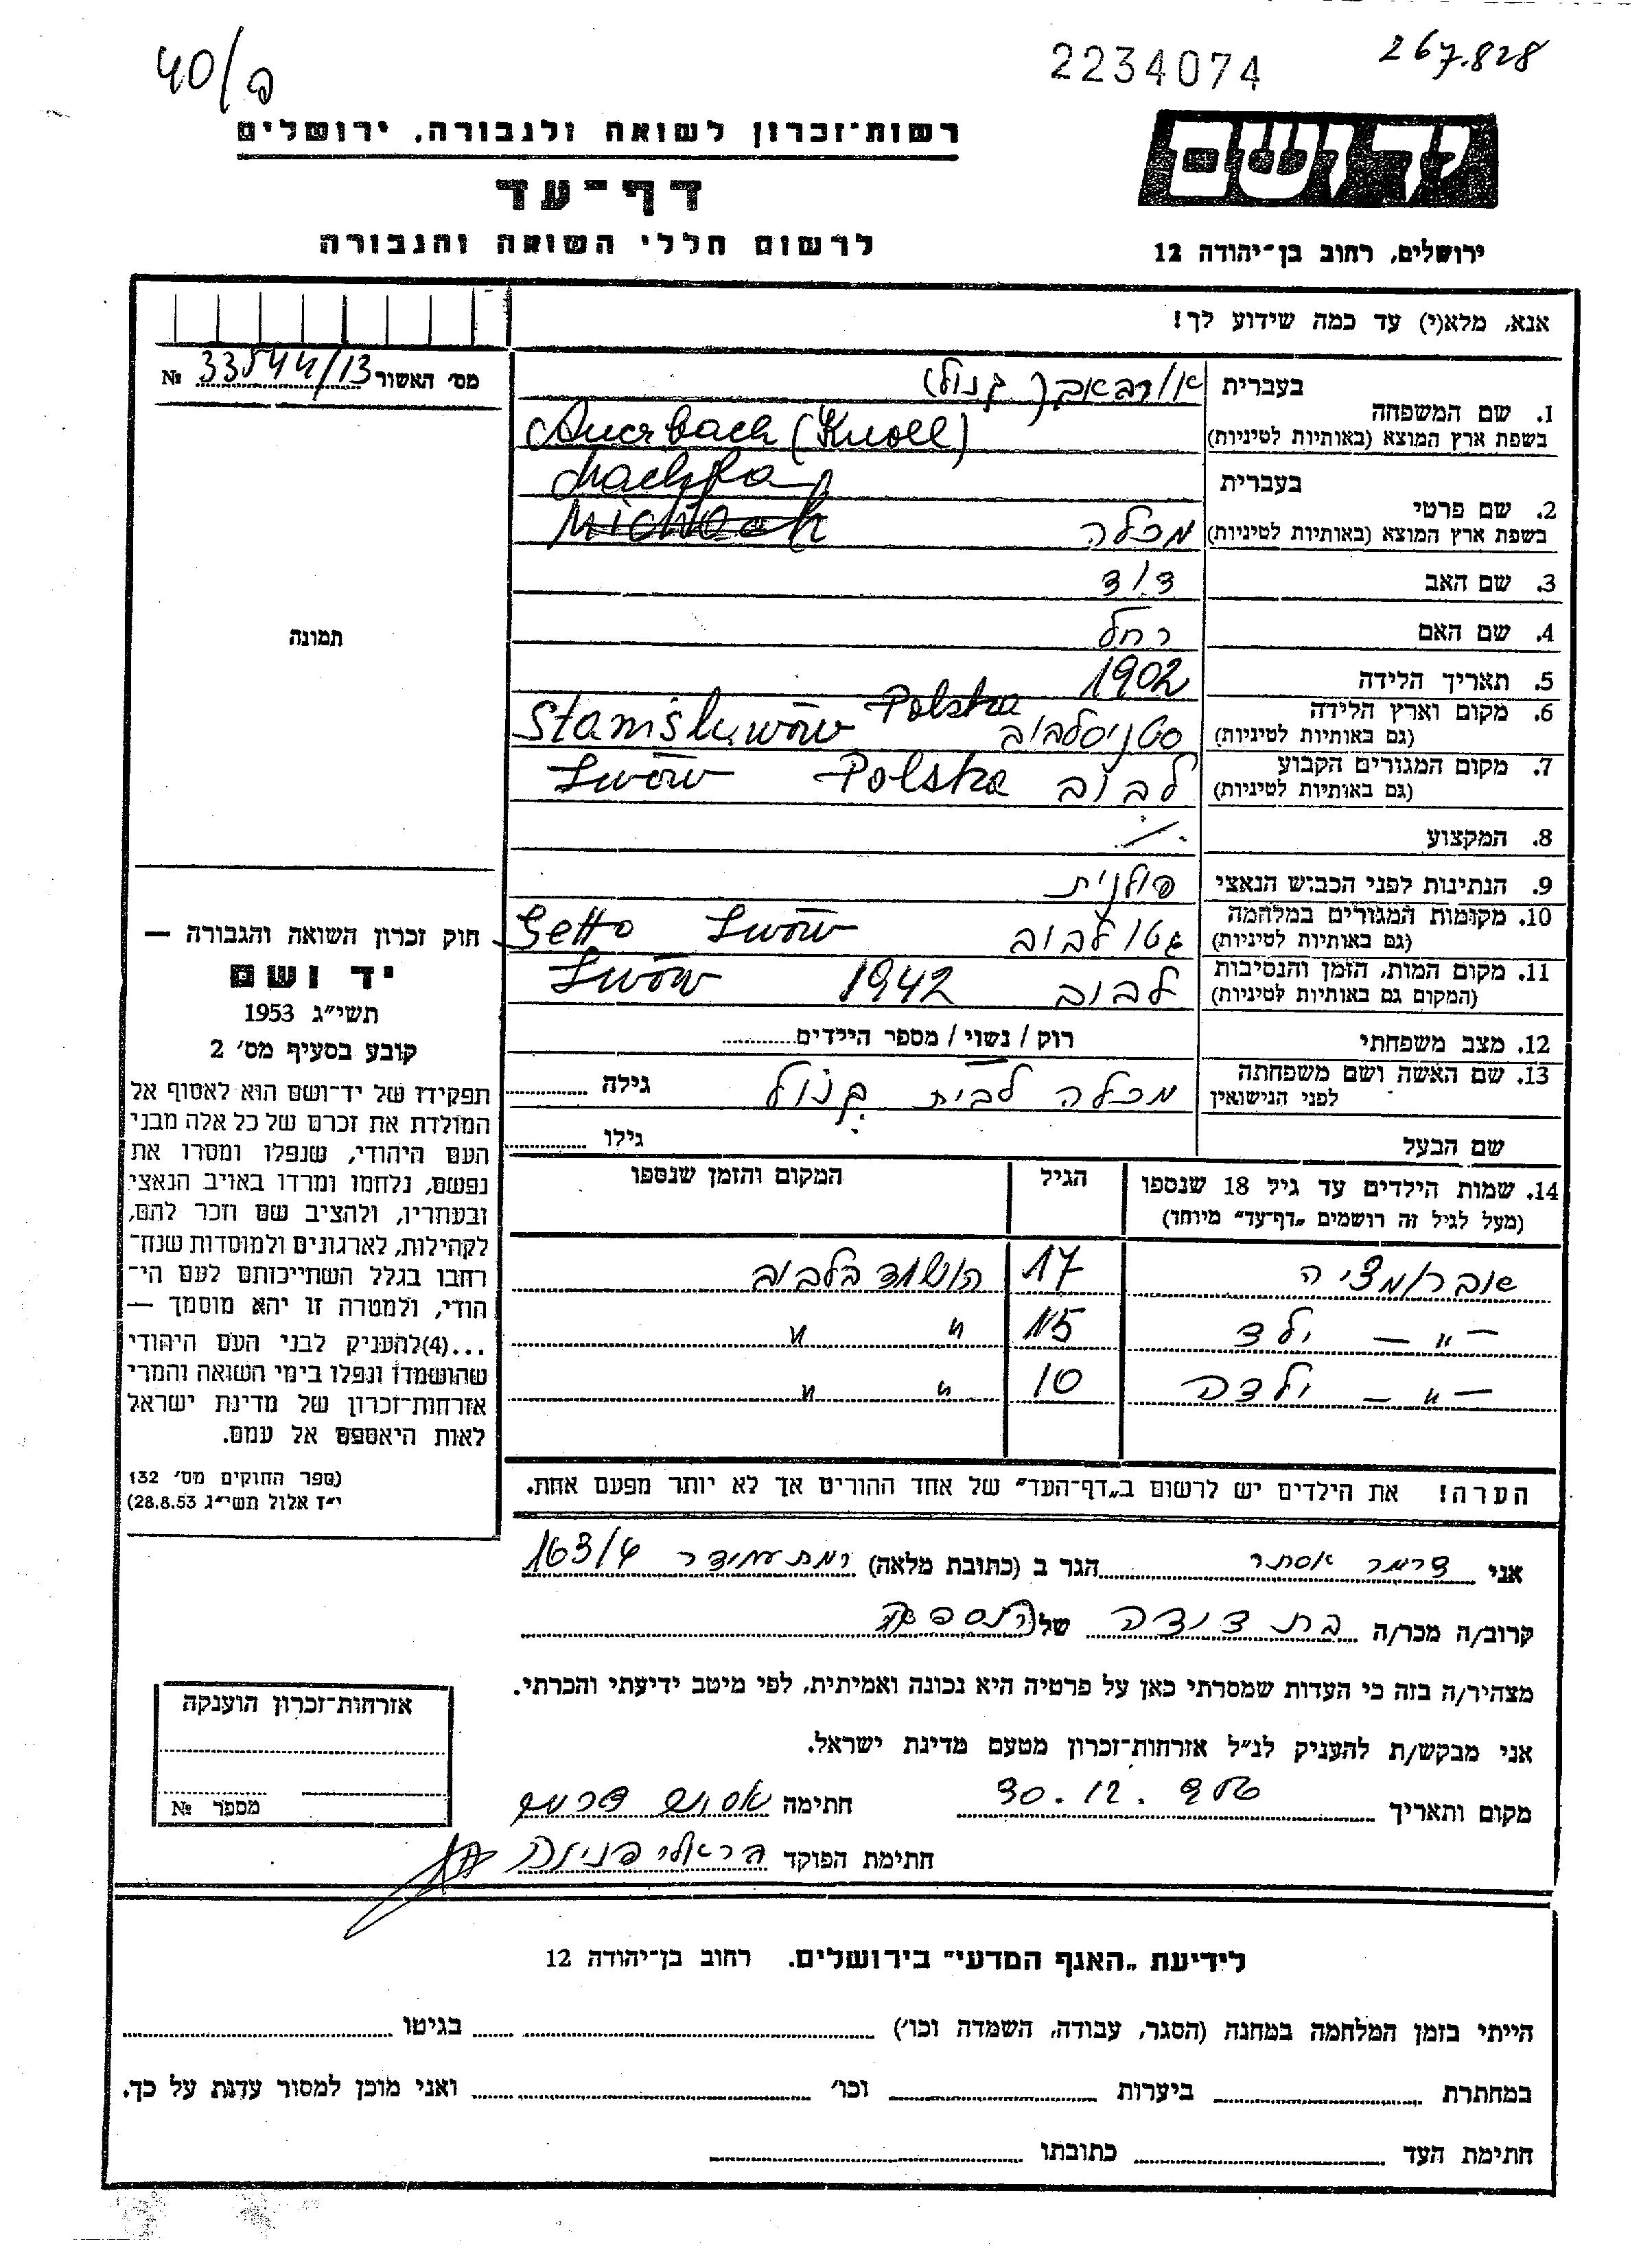 40/פ
2234074
267.828
יד ושם
רשות־זכרון לשואה ולגבורה, ירושלים
דף־עד
לרשום חללי השואה והגבורה
ירושלים, רחוב בן־יהודה 12
אנא, מלא(י) עד כמה שידוע לך!
מס׳ האשור 33544/13 №
תמונה
1. שם המשפחה
בעברית אוירבאך (קנול)
בשפת ארץ המוצא (באותיות לטיניות) Auerbach (Knoll)
2. שם פרטי
בעברית
בשפת ארץ המוצא (באותיות לטיניות) מכלה
3. שם האב דוד
4. שם האם רחל
5. תאריך הלידה 1902
6. מקום וארץ הלידה
(גם באותיות לטיניות) סטניסלבוב Stanisławów Polska
7. מקום המגורים הקבוע
(גם באותיות לטיניות) לבוב Polska Lwów
8. המקצוע
9. הנתינות לפני הכבוש הנאצי פולנית
10. מקומות המגורים במלחמה
(גם באותיות לטיניות) גטו לבוב Getto Lwów
11. מקום המות, הזמן והנסיבות
(המקום גם באותיות לטיניות) לבוב 1942 Lwów
12. מצב משפחתי רוק / נשוי / מספר הילדים
13. שם האשה ושם משפחתה
לפני הנישואין מכלה לבית קנול גילה
שם הבעל גילו
14. שמות הילדים עד גיל 18 שנספו
(מעל לגיל זה רושמים „דף־עד" מיוחד)
הגיל
המקום והזמן שנספו
17 הושמד בלבוב
— " — ילד 15 " "
— " — ילדה 10 " "
הערה! את הילדים יש לרשום ב„דף־העד" של אחד ההורים אך לא יותר מפעם אחת.
חוק זכרון השואה והגבורה —
יד ושם
תשי״ג 1953
קובע בסעיף מס׳ 2
תפקידו של יד־ושם הוא לאסוף אל
המולדת את זכרם של כל אלה מבני
העם היהודי, שנפלו ומסרו את
נפשם, נלחמו ומרדו באויב הנאצי
ובעוזריו, ולהציב שם וזכר להם,
לקהילות, לארגונים ולמוסדות שנח־
רבו בגלל השתייכותם לעם הי־
הודי, ולמטרה זו יהא מוסמך —
...(4)להעניק לבני העם היהודי
שהושמדו ונפלו בימי השואה והמרי
אזרחות־זכרון של מדינת ישראל
לאות היאספם אל עמם.
(ספר החוקים מס׳ 132
י״ז אלול תשי״ג 28.8.53)
אני דרימר אסתר הגר ב (כתובת מלאה) רמת עמידר 163/4
קרוב/ה מכר/ה בת דודה של הנספה
מצהיר/ה בזה כי העדות שמסרתי כאן על פרטיה היא נכונה ואמיתית, לפי מיטב ידיעתי והכרתי.
אני מבקש/ת להעניק לנ״ל אזרחות־זכרון מטעם מדינת ישראל.
מקום ותאריך 30.12. חתימה
חתימת הפוקד הראלי פנינה
אזרחות־זכרון הוענקה
מספר №
לידיעת „האגף המדעי" בירושלים. רחוב בן־יהודה 12
הייתי בזמן המלחמה במחנה (הסגר, עבודה, השמדה וכו׳) בגיטו
במחתרת ביערות וכו׳ ואני מוכן למסור עדות על כך.
חתימת העד כתובתו